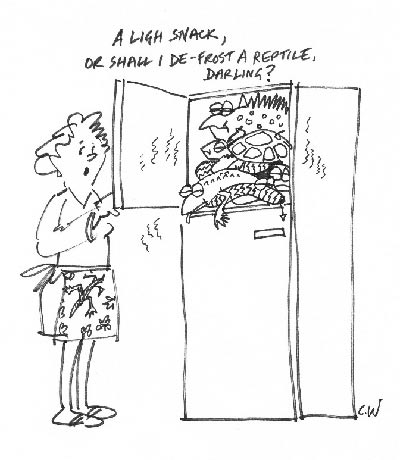 A LIGH SNACK,
OR SHALL I DE-FROST A REPTILE,
DARLING?
C.W